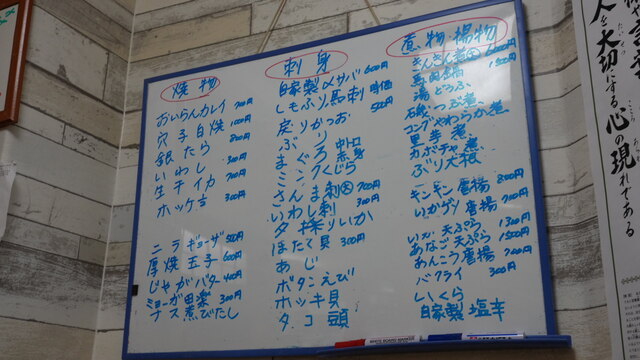 焼物
おいらんカレイ 700円
穴子白焼 1000円
銀たら 800円
いわし 300円
生干イカ 700円
ホッケ 300円
ニラギョーザ 500円
厚焼玉子 600円
じゃがバター 400円
ミョーガ田楽 300円
ナス煮びたし
刺身
自家製〆サバ 600円
しもふり馬刺 時価
戻りがつお 500円
ぶり
まぐろ 中トロ 赤身
ミンククジラ
さんま刺 大 700円
いわし刺 300円
夕採りいか
ほたて貝 300円
あじ
ボタンえび
ホッキ貝
タコ頭
煮物・揚物
きんきん煮 大
馬肉鍋 1500円
湯どうふ
コンブやわらか煮
里芋煮
カボチャ煮
ぶり大根
キンキン唐揚 800円
いかゲソ唐揚 700円
いか天ぷら 1300円
あなご天ぷら 1500円
あんこう唐揚 700円
バクライ 300円
いくら
自家製塩辛
人を大切になる
心の現れである